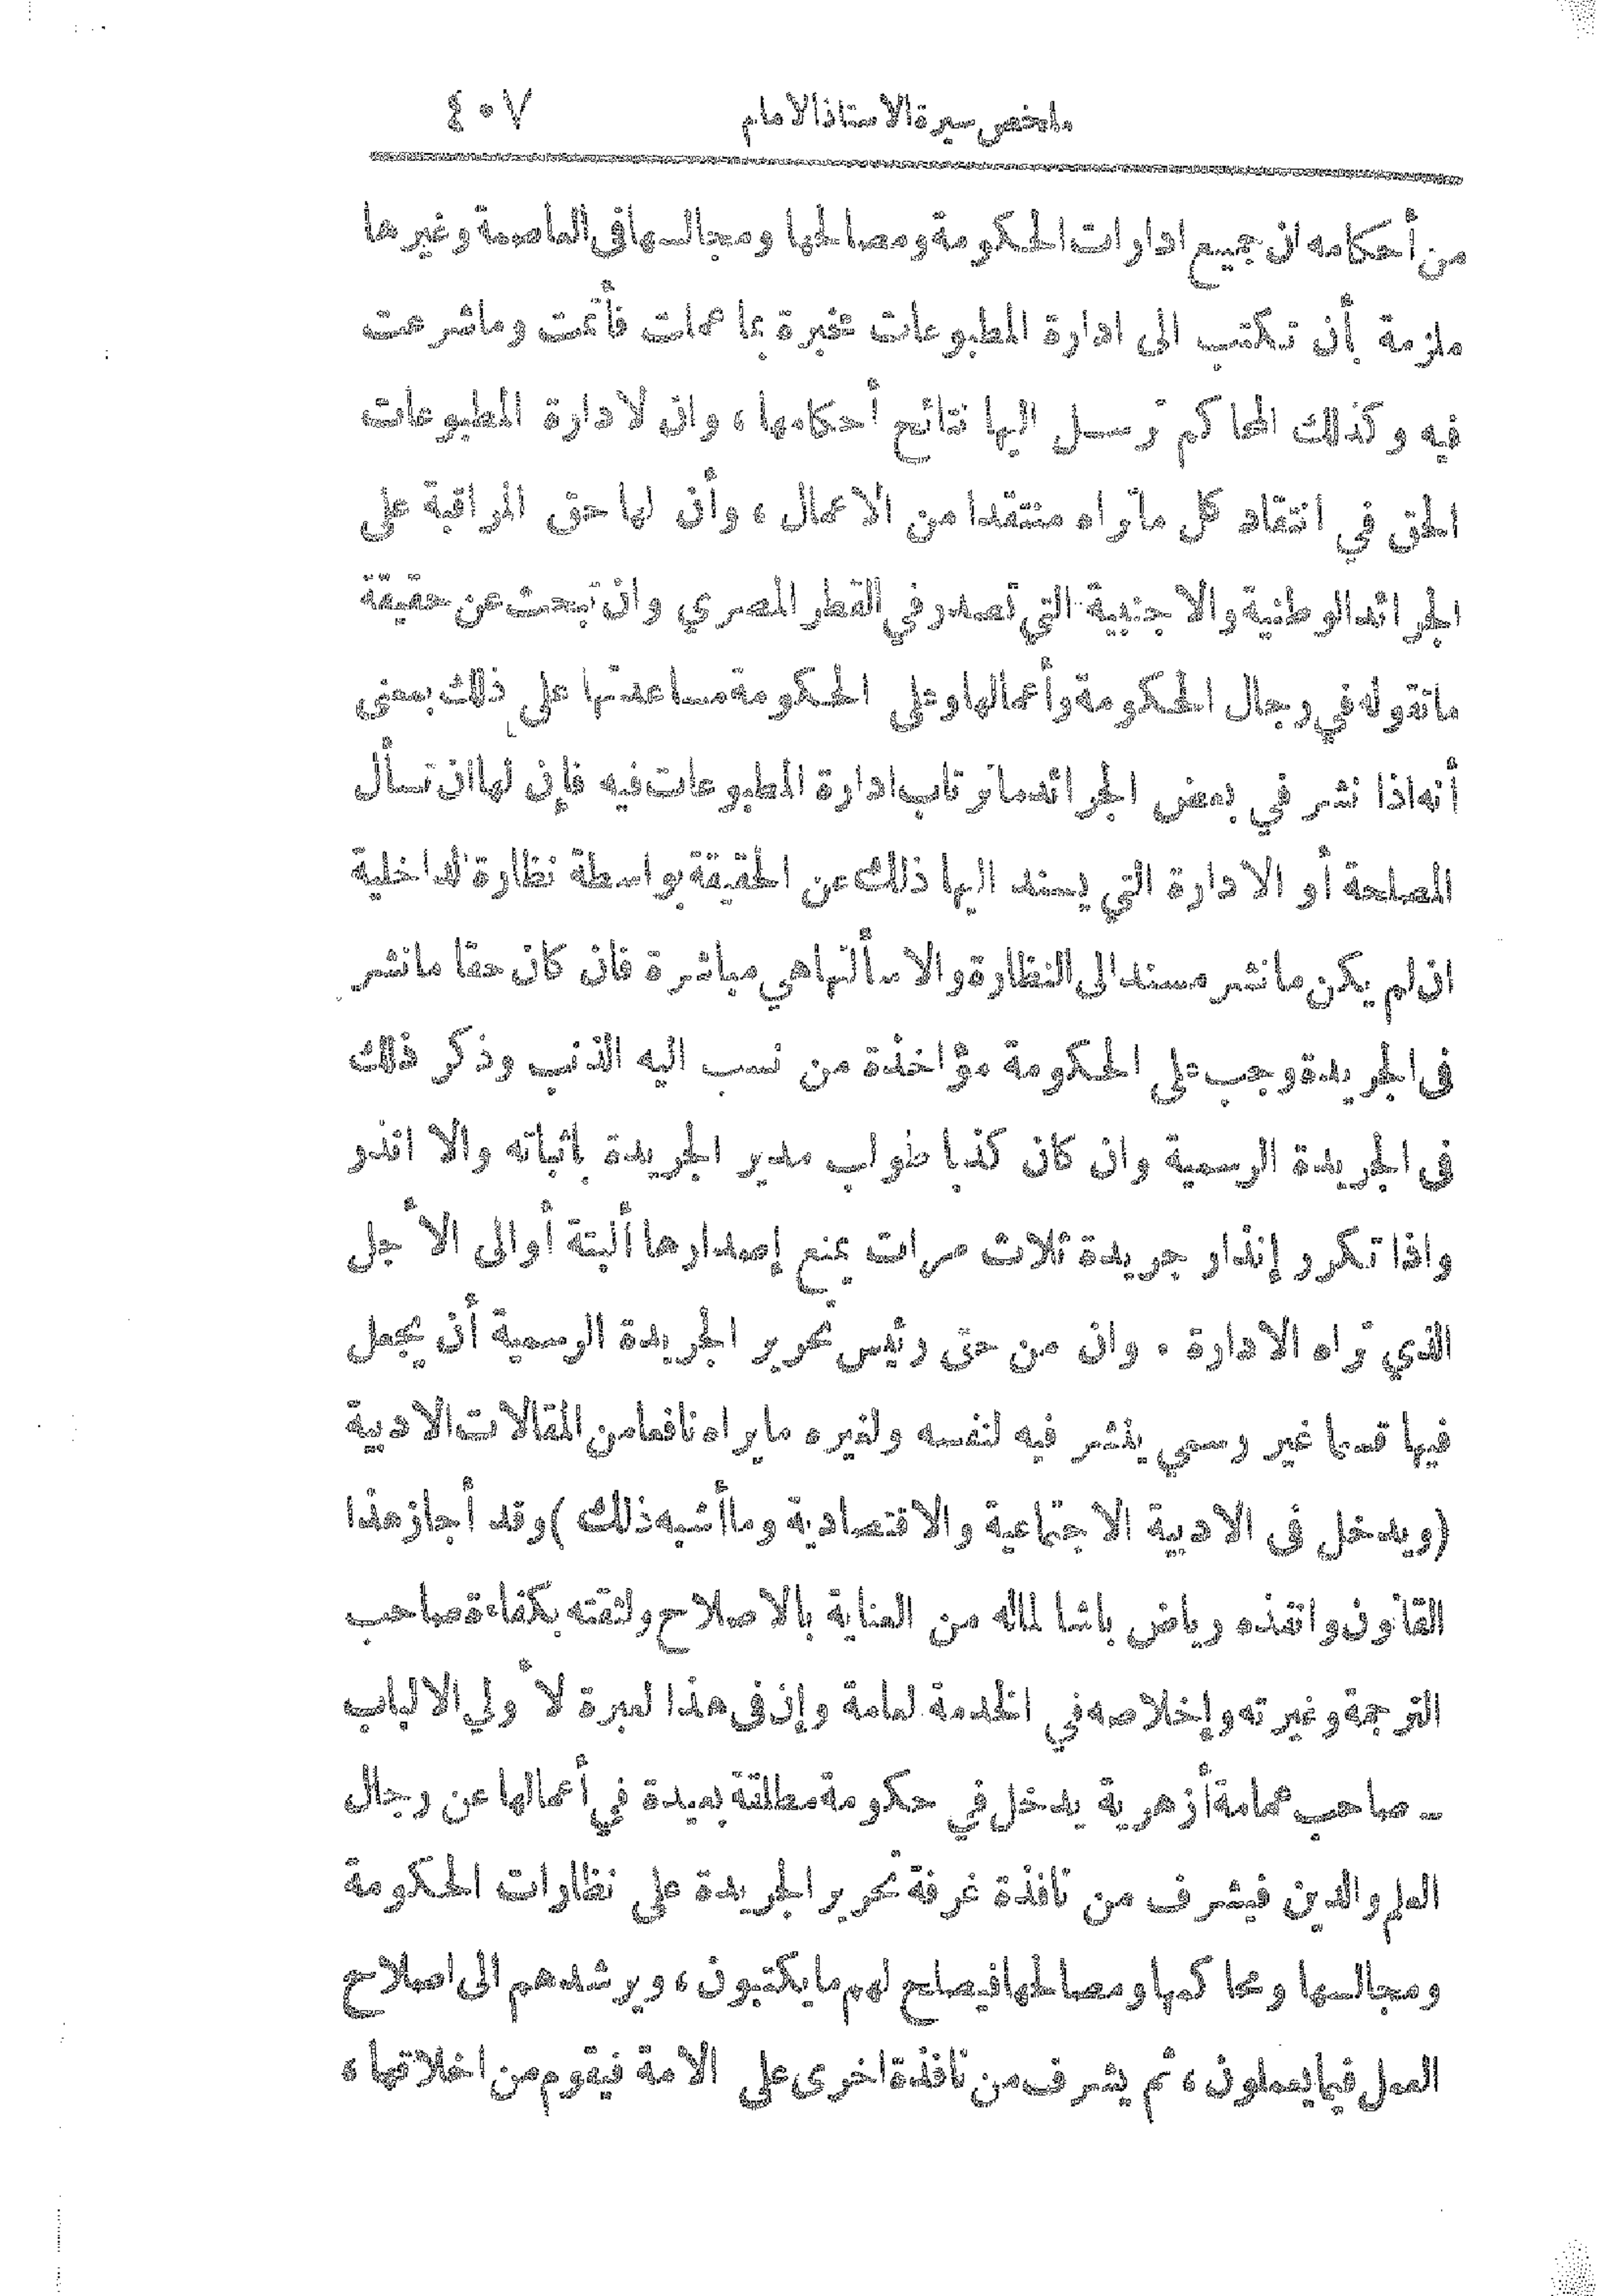 ملخص سيرة الاستاذ الامام ٤٠٧
من أحكامه ان جميع ادارات الحكومة ومصالحها ومجالسها في العاصمة وغيرها
ملزمة بأن تكتب الى ادارة المطبوعات مخبرة بما عملت فأتمت وما شرعت
فيه وكذلك المحاكم ترسل اليها نتائج أحكامها ، وان لادارة المطبوعات
الحق في انتقاد كل ما تراه منتقدا من الاعمال ، وأن لها حق المراقبة على
الجرائد الوطنية والاجنبية التي تصدر في القطر المصري وان تبحث عن حقيقة
ما تقوله في رجال الحكومة وأعمالها وعلى الحكومة مساعدتها على ذلك بمعنى
أنه اذا نشر في بعض الجرائد ما ترتاب ادارة المطبوعات فيه فإن لها ان تسأل
المصلحة أو الادارة التي يسند اليها ذلك عن الحقيقة بواسطة نظارة الداخلية
ان لم يكن ما نشر مسندا الى النظارة والا سألتها هي مباشرة فان كان حقا ما نشر
في الجريدة وجب على الحكومة مؤاخذة من نسب اليه الذنب وذكر ذلك
في الجريدة الرسمية وان كان كذبا طولب مدير الجريدة باثباته والا انذر
واذا تكرر إنذار جريدة ثلاث مرات يمنع إصدارها ألبتة أو الى الأجل
الذي تراه الادارة . وان من حق رئيس تحرير الجريدة الرسمية أن يجعل
فيها قسما غير رسمي ينشر فيه لنفسه ولغيره ما يراه نافعا من المقالات الادبية
(ويدخل في الادبية الاجتماعية والاقتصادية وما أشبه ذلك) وقد أجاز هذا
القانون وانفذه رياض باشا لما له من العناية بالاصلاح ولثقته بكفاءة صاحب
الترجمة وغيرته وإخلاصه في الخدمة العامة وإن في هذا لعبرة لأولي الالباب
ـ صاحب عمامة أزهرية يدخل في حكومة مطلقة بعيدة في أعمالها عن رجال
العلم والدين فيشرف من نافذة غرفة تحرير الجريدة على نظارات الحكومة
ومجالسها ومحاكمها ومصالحها فيصلح لهم ما يكتبون ، ويرشدهم الى اصلاح
العمل فيما يعملون ، ثم يشرف من نافذة اخرى على الامة فيقوم من اخلاقها ،